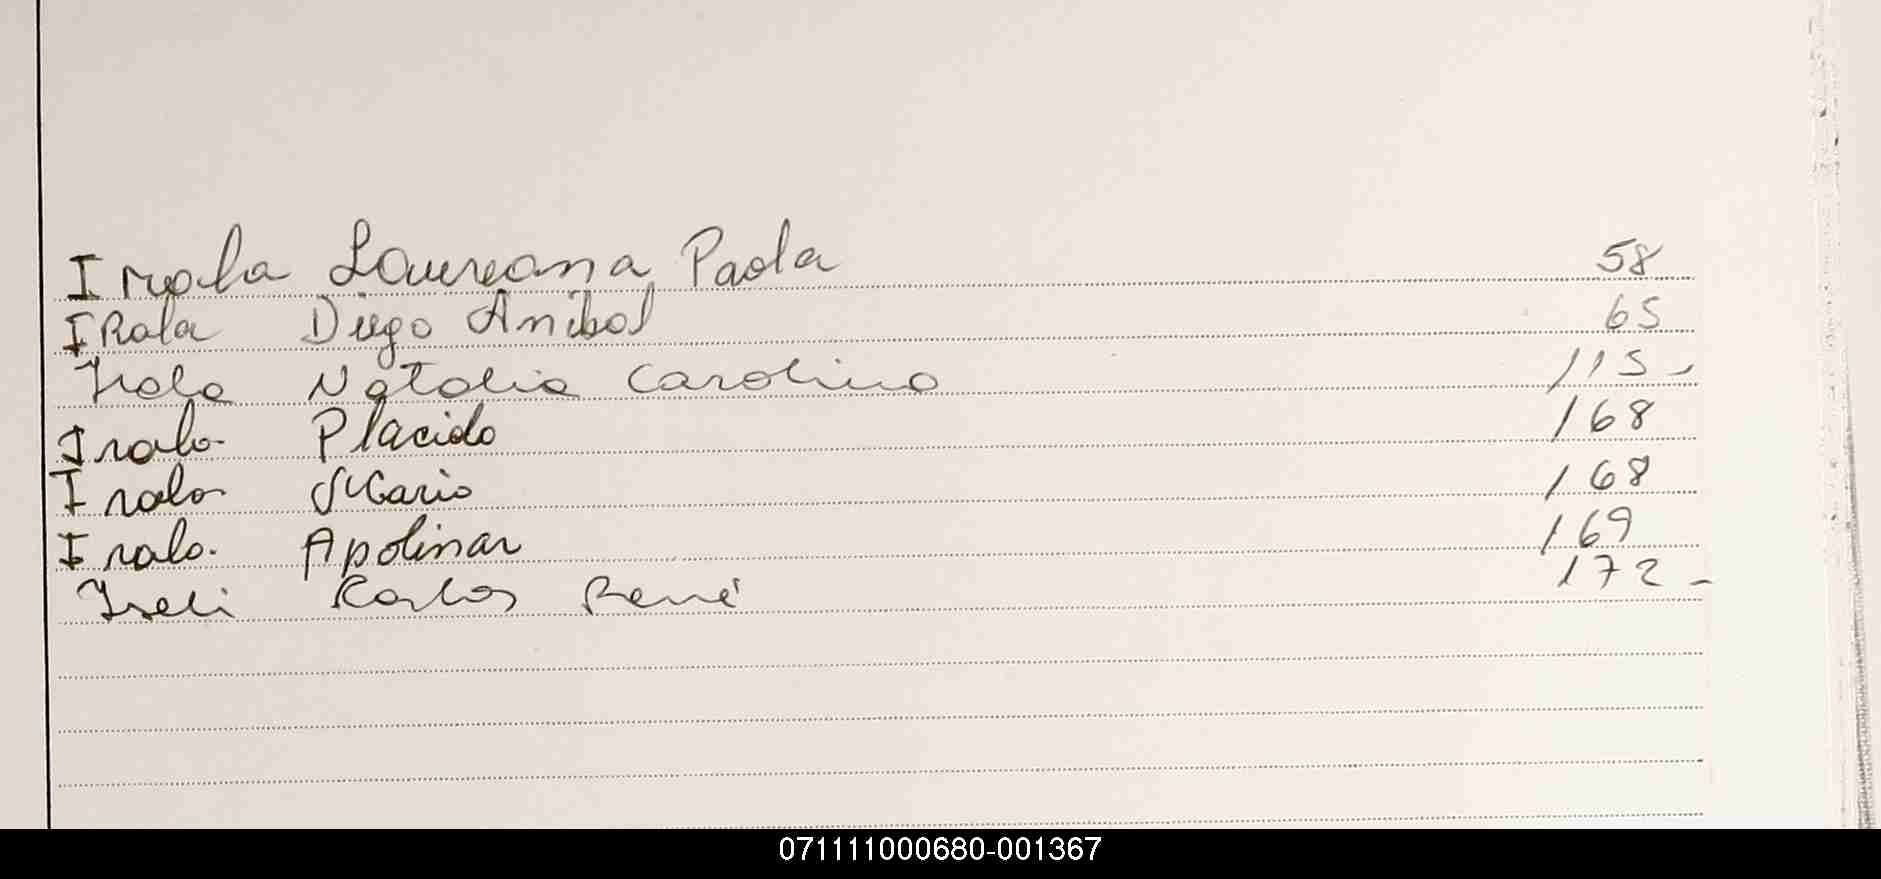 Irala Laureana Paola 58
IRala Diego Anibal 65
Irala Natalia Carolina 115-
Irala Placido 168
Irala Mario 168
Irala Apolinar 169
Iseli Carlos René 172-
071111000680-001367